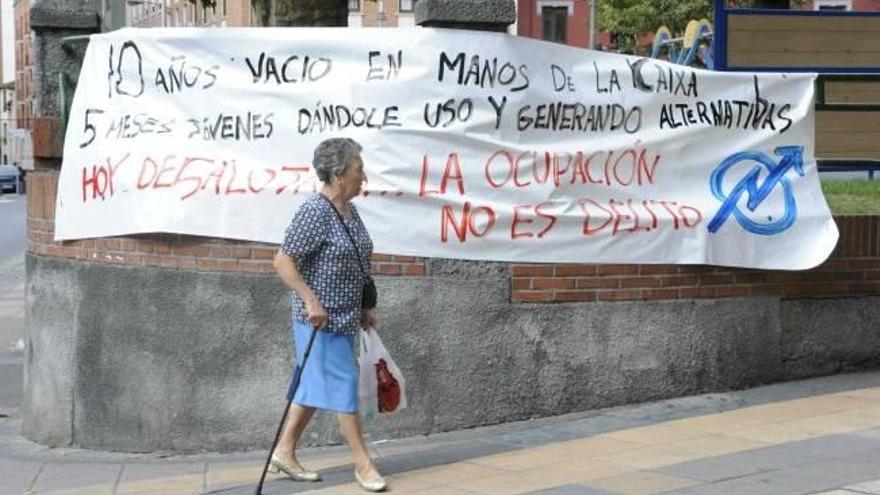 10 AÑOS VACIO EN MANOS DE LA KAIXA
5 MESES JÓVENES DÁNDOLE USO Y GENERANDO ALTERNATIVAS
HOY DESALOJAN... LA OCUPACIÓN
NO ES DELITO